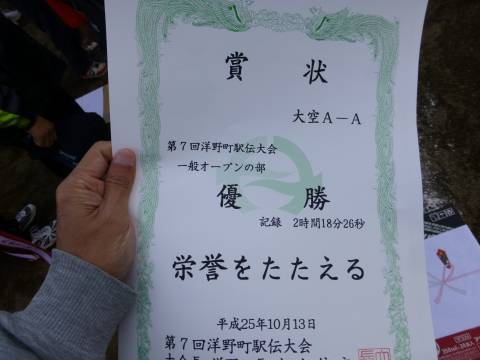 賞状
大空A－A
第7回洋野町駅伝大会
一般オープンの部
優勝
記録 2時間18分26秒
栄誉をたたえる
平成25年10月13日
第7回洋野町駅伝大会